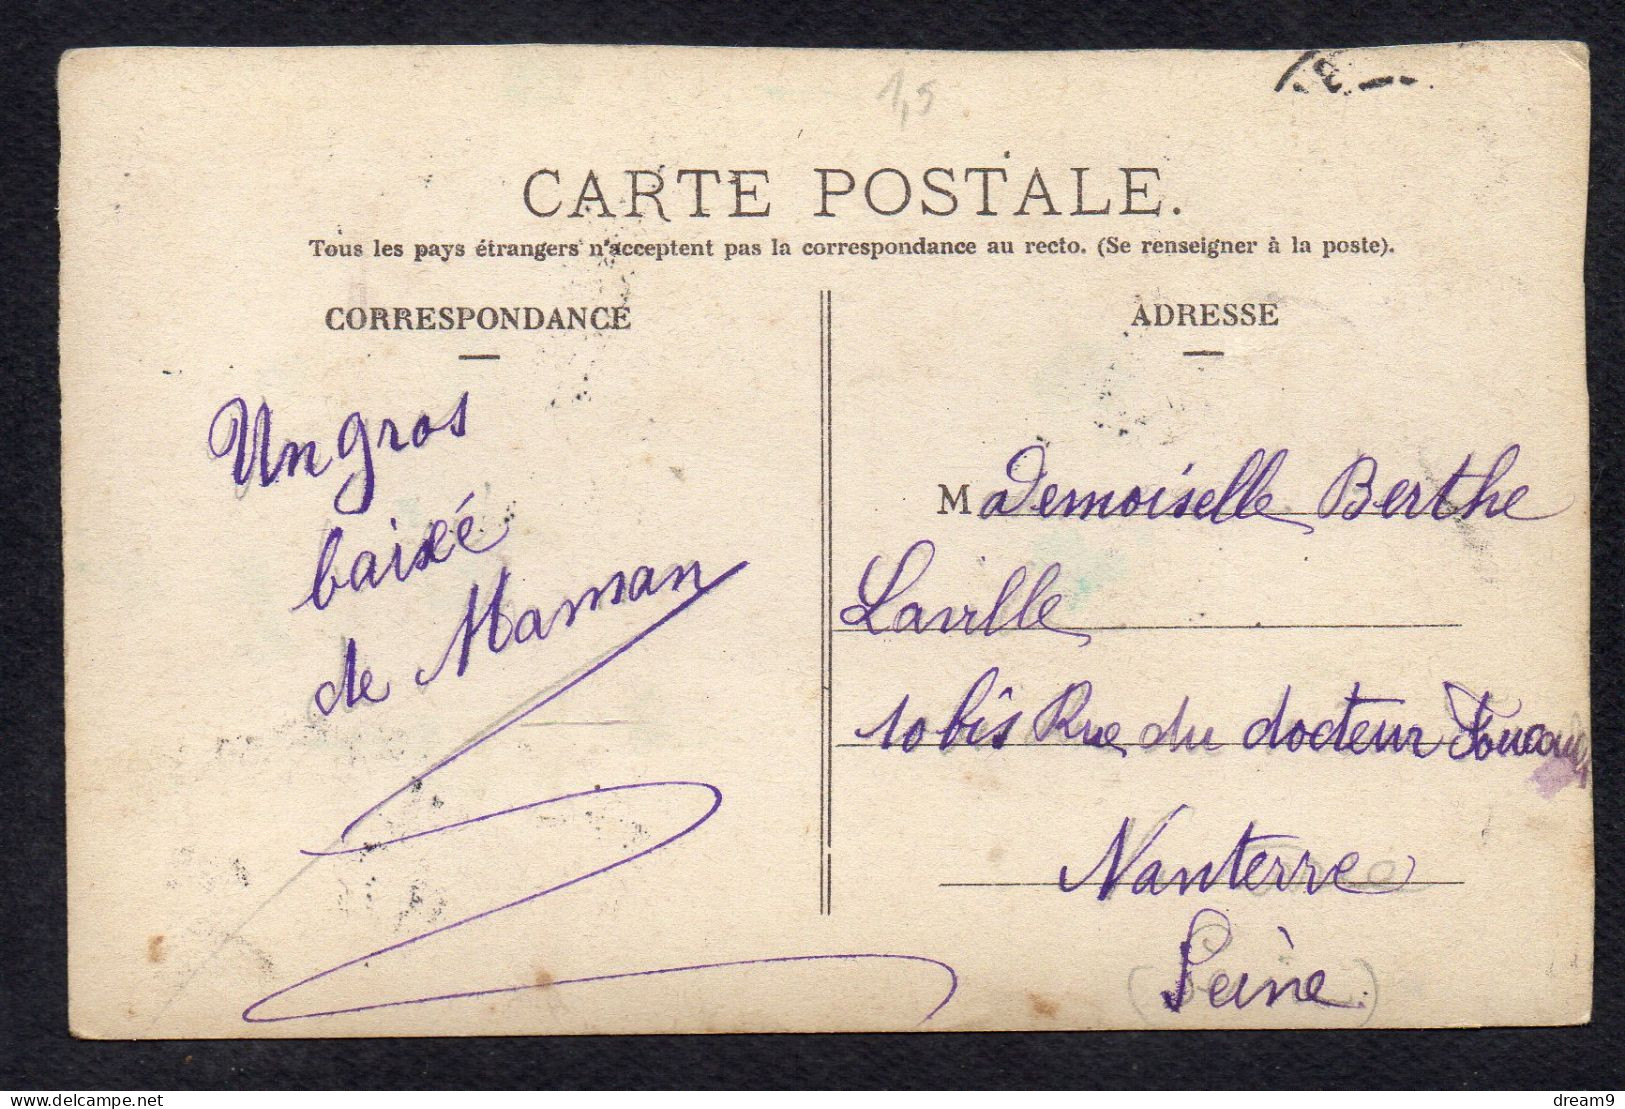 1,5
CARTE POSTALE.
Tous les pays étrangers n'acceptent pas la correspondance au recto. (Se renseigner à la poste).
CORRESPONDANCE
Un gros
baiseé
de Maman
ADRESSE
Mademoiselle Berthe
Laville
10 bis Rue du docteur
Nanterre
Seine
delcampe.net
dream9